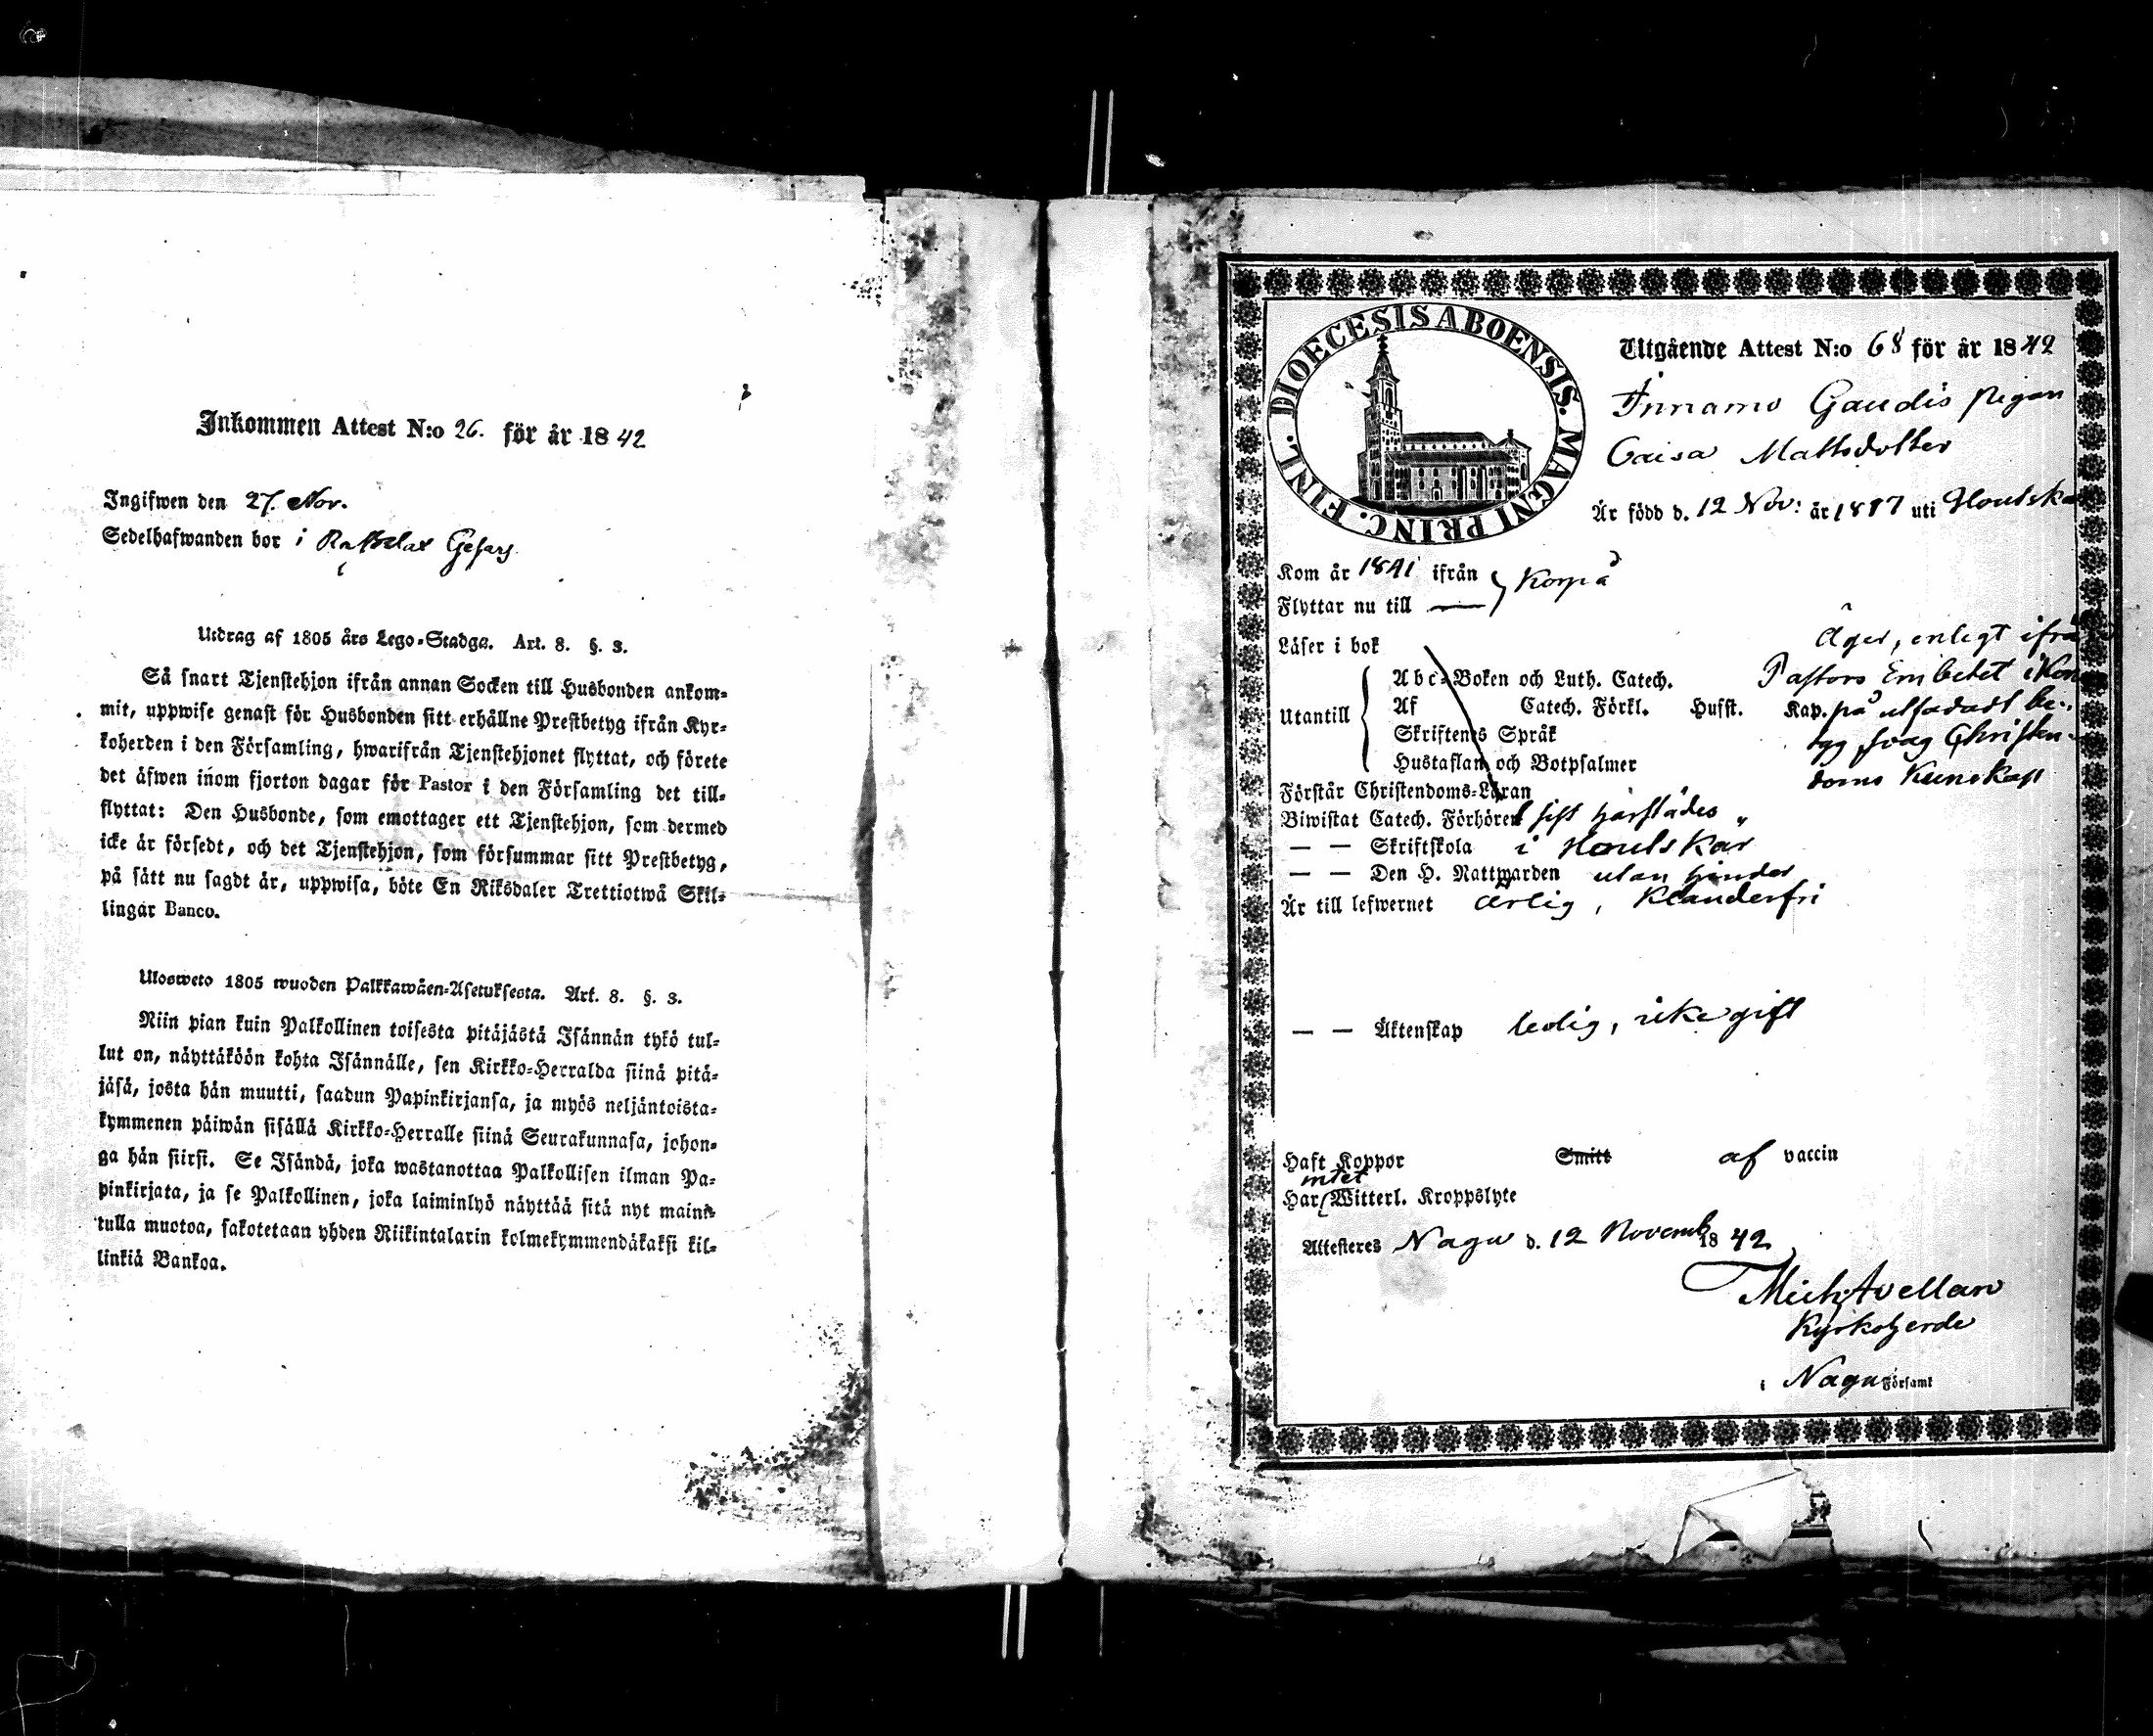 Inkommen Attest N:o 26. för år 1842
Ingifwen den 27. Nov.
Sedelhafwanden bor i
Utdrag af 1805 års Lego-Stadga. Art. 8. §. 3.
Så snart Tjenstehjon ifrån annan Socken till Husbonden ankom-
mit, uppwise genast för Husbonden sitt erhållne Prestbetyg ifrån Kyr-
koherden i den Församling, hwarifrån Tjenstehjonet flyttat, och förete
det äfwen inom fjorton dagar för Pastor i den Församling det till-
flyttat: Den Husbonde, som emottager ett Tjenstehjon, som dermed
icke är försedt, och det Tjenstehjon, som försummar sitt Prestbetyg,
på sätt nu sagdt är, uppwisa, böte En Riksdaler Trettiotwå Skil-
lingar Banco.
Ulosweto 1805 wuoden Palkkawäen-Asetuksesta. Art. 8. §. 3.
Niin pian kuin Palkollinen toisesta pitäjästä Isännän tykö tul-
lut on, näyttäköön kohta Isännälle, sen Kirkko-Herralda siinä pitä-
jäsä, josta hän muutti, saadun Papinkirjansa, ja myös neljäntoista-
kymmenen päiwän sisällä Kirkko-Herralle siinä Seurakunnasa, johon-
ga hän siirsi. Se Isändä, joka wastanottaa Palkollisen ilman Pa-
pinkirjata, ja se Palkollinen, joka laiminlyö näyttää sitä nyt maini-
tulla muotoa, sakotetaan yhden Riikintalarin kolmekymmendäkaksi kil-
linkiä Bankoa.
DIOECESIS ABOENSIS. MAGNI PRINC. FINL.
Utgående Attest N:o 68 för år 1842
Innamo Gaudis Pigan
Caisa Mattsdotter
Är född d. 12 Nov: år 1817 uti Houtskä
Kom år 1841 ifrån } Korpå
Flyttar nu till —
Läser i bok
Äger, enligt ifrå
Abc-Boken och Luth. Catech.
Pastors Embetet i Kor
Utantill { Af Catech. Förkl. Husst. Kap.
på utfärdadt be-
Skriftenes Språk
tyg svag Christen-
Hustaflan och Botpsalmer
doms Kunskap
Förstår Christendoms-Läran
Biwistat Catech. Förhören sist härstädes
— — Skriftskola i Houtskär
— — Den H. Nattwarden utan hinder
Är till lefwernet ärlig, klanderfri
— — Äktenskap ledig, icke gift
Haft Koppor Smitt af vaccin
intet
Har Witterl. Kroppslyte
Attesteres Nagu d. 12 Novemb 1842
Mich Avellan
Kyrkoherde
i Nagu Församl